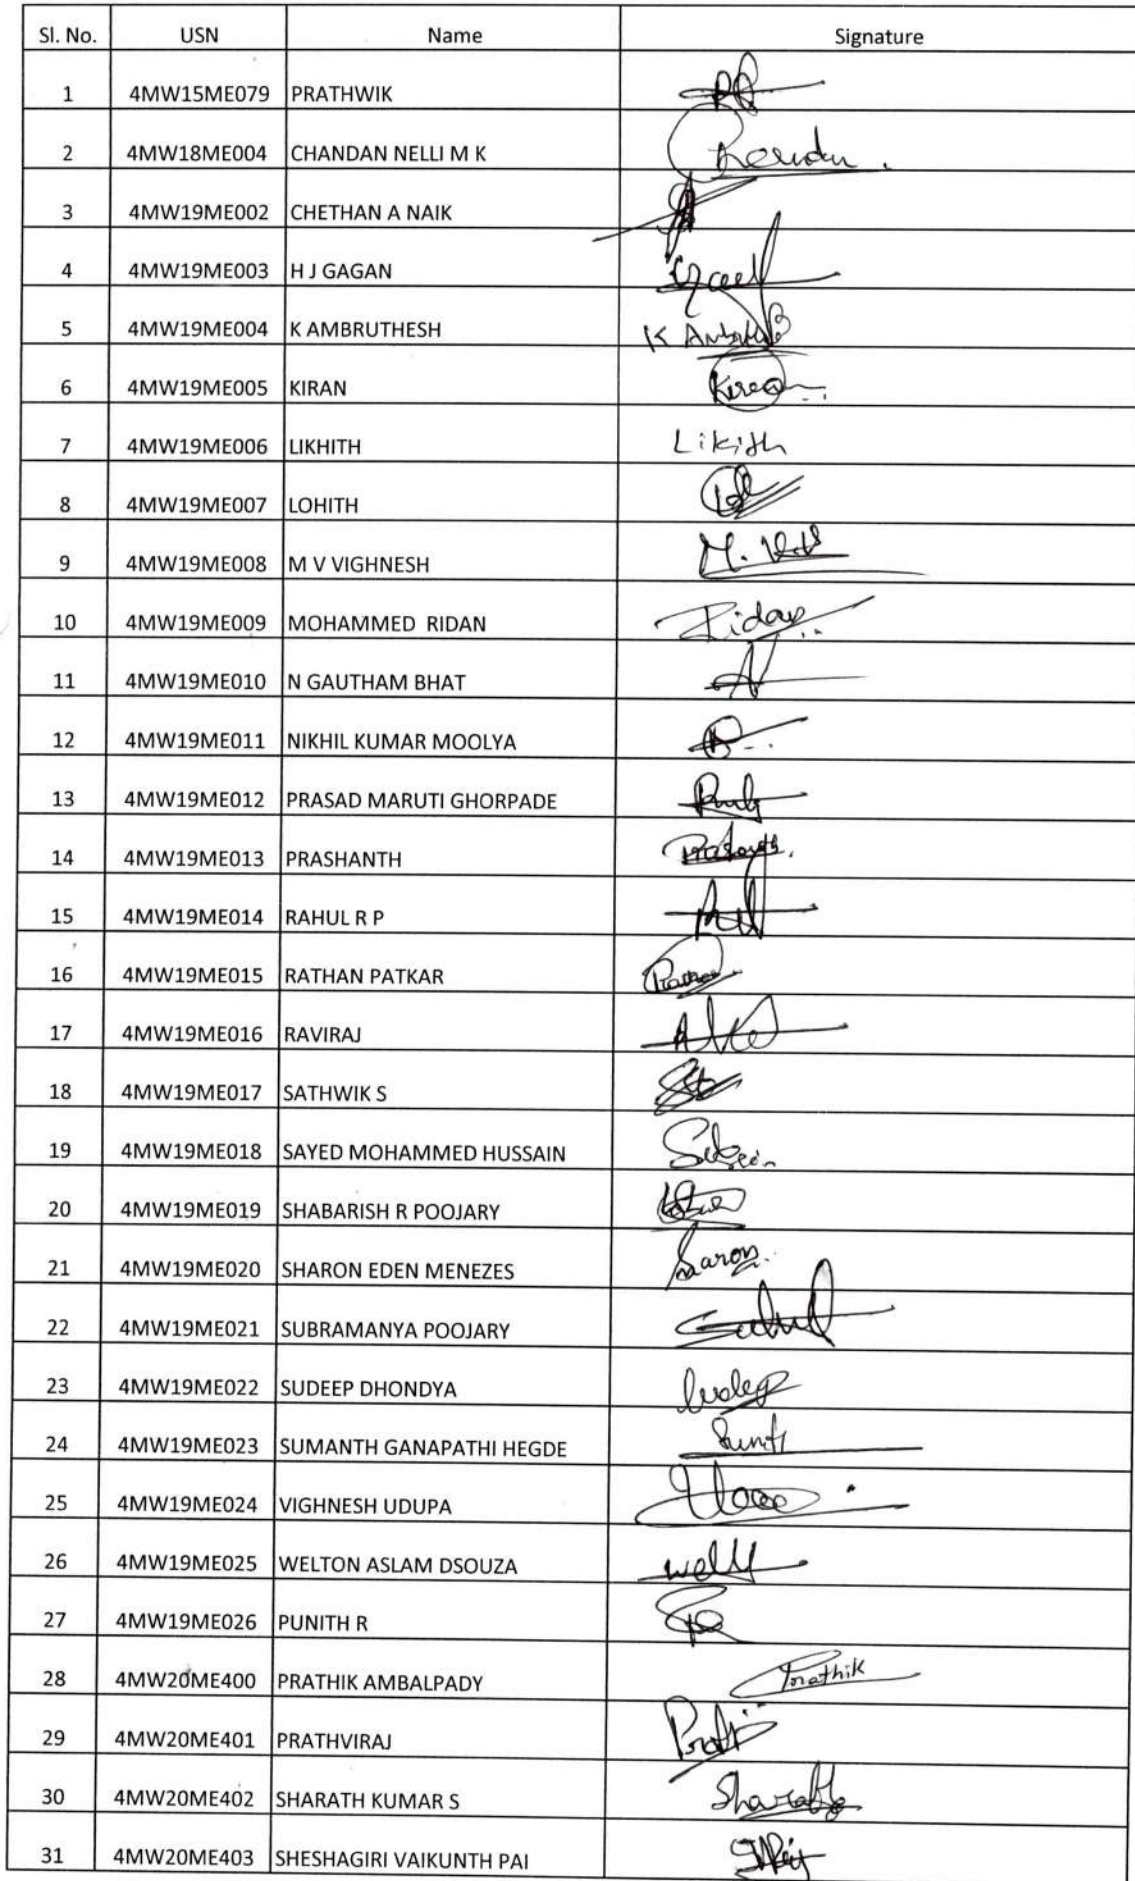 Sl. No. USN Name Signature
1 4MW15ME079 PRATHWIK
2 4MW18ME004 CHANDAN NELLI M K
3 4MW19ME002 CHETHAN A NAIK
4 4MW19ME003 H J GAGAN
5 4MW19ME004 K AMBRUTHESH K
6 4MW19ME005 KIRAN Kiran
7 4MW19ME006 LIKHITH Likith
8 4MW19ME007 LOHITH
9 4MW19ME008 M V VIGHNESH
10 4MW19ME009 MOHAMMED RIDAN Ridan
11 4MW19ME010 N GAUTHAM BHAT
12 4MW19ME011 NIKHIL KUMAR MOOLYA
13 4MW19ME012 PRASAD MARUTI GHORPADE
14 4MW19ME013 PRASHANTH
15 4MW19ME014 RAHUL R P
16 4MW19ME015 RATHAN PATKAR
17 4MW19ME016 RAVIRAJ
18 4MW19ME017 SATHWIK S
19 4MW19ME018 SAYED MOHAMMED HUSSAIN
20 4MW19ME019 SHABARISH R POOJARY
21 4MW19ME020 SHARON EDEN MENEZES Saron
22 4MW19ME021 SUBRAMANYA POOJARY
23 4MW19ME022 SUDEEP DHONDYA
24 4MW19ME023 SUMANTH GANAPATHI HEGDE
25 4MW19ME024 VIGHNESH UDUPA
26 4MW19ME025 WELTON ASLAM DSOUZA
27 4MW19ME026 PUNITH R
28 4MW20ME400 PRATHIK AMBALPADY Prathik
29 4MW20ME401 PRATHVIRAJ
30 4MW20ME402 SHARATH KUMAR S
31 4MW20ME403 SHESHAGIRI VAIKUNTH PAI